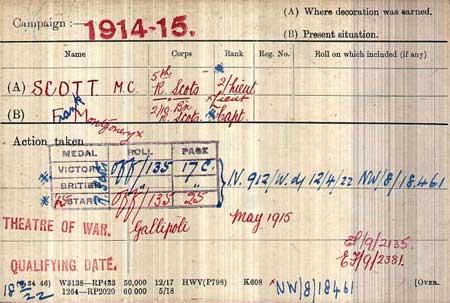 Campaign :— 1914-15.
(A) Where decoration was earned.
(B) Present situation.
Name Corps Rank Reg. No. Roll on which included (if any)
(A) SCOTT M.C. 5th R. Scots 2/Lieut
(B) Frank Montgomery x 2/10 Bn R. Scots x Lieut Capt
Action taken
MEDAL ROLL PAGE
VICTORY Off/135 17C.
BRITISH " "
15 STAR Off/135 25
IV. 912/W. dy 12/4/22 NW/8/18461
THEATRE OF WAR. Gallipoli May 1915
QUALIFYING DATE.
EF/9/2135.
EF/9/2381.
W3138—RP433 50,000 12/17 HWV(P798) K608 NW/8/18461
1264—RP2020 60 000 5/18
[Over.